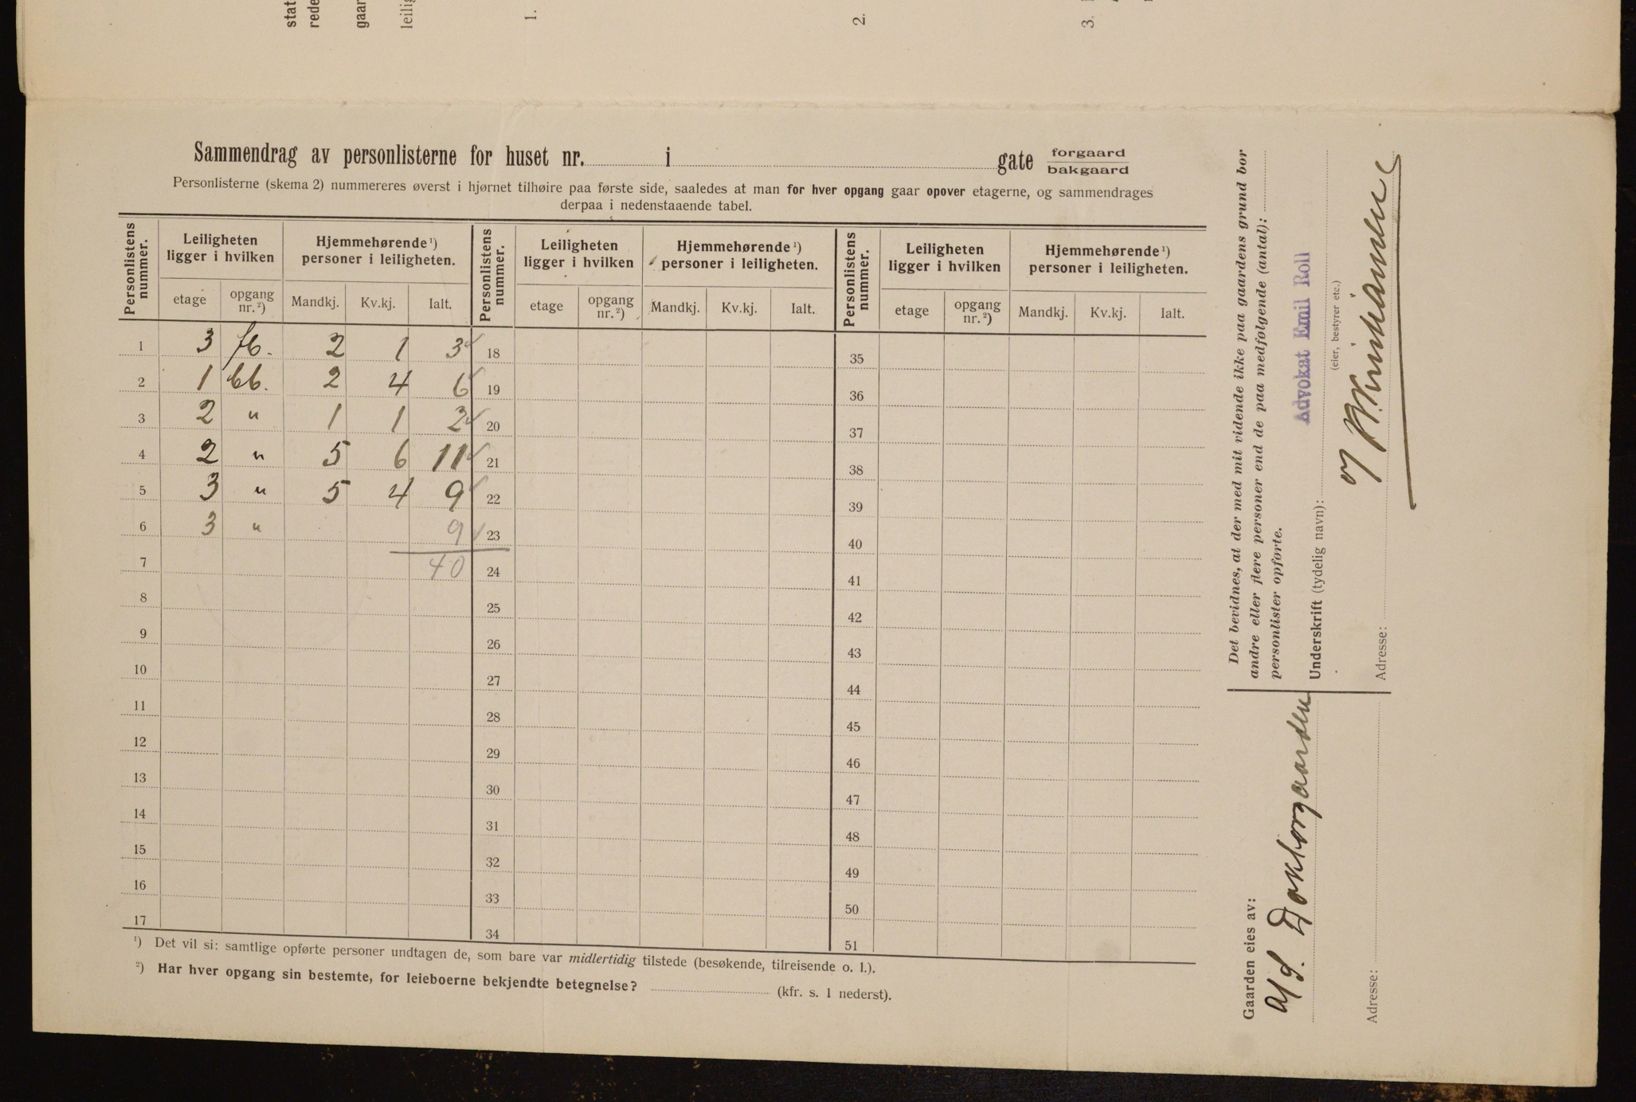 stat
rede
gaar
leilig
1.
2.
3.
Sammendrag av personlisterne for huset nr. i gate forgaard bakgaard
Personlisterne (skema 2) nummereres øverst i hjørnet tilhøire paa første side, saaledes at man for hver opgang gaar opover etagerne, og sammendrages
derpaa i nedenstaaende tabel.
Personlistens nummer. Leiligheten ligger i hvilken Hjemmehørende¹) personer i leiligheten. Personlistens nummer. Leiligheten ligger i hvilken Hjemmehørende¹) personer i leiligheten. Personlistens nummer. Leiligheten ligger i hvilken Hjemmehørende¹) personer i leiligheten.
etage opgang nr.²) Mandkj. Kv.kj. Ialt. etage opgang nr.²) Mandkj. Kv.kj. Ialt. etage opgang nr.²) Mandkj. Kv.kj. Ialt.
1 3 fb. 2 1 3 18 35
2 1 bb. 2 4 6 19 36
3 2 " 1 1 2 20 37
4 2 " 5 6 11 21 38
5 3 " 5 4 9 22 39
6 3 " 9 23 40
7 40 24 41
8 25 42
9 26 43
10 27 44
11 28 45
12 29 46
13 30 47
14 31 48
15 32 49
16 33 50
17 34 51
¹) Det vil si: samtlige opførte personer undtagen de, som bare var midlertidig tilstede (besøkende, tilreisende o. l.).
²) Har hver opgang sin bestemte, for leieboerne bekjendte betegnelse? (kfr. s. 1 nederst).
Det bevidnes, at der med mit vidende ikke paa gaardens grund bor
andre eller flere personer end de paa medfølgende (antal):
personlister opførte.
Advokat Emil Roll
Underskrift (tydelig navn):
(eier, bestyrer etc.)
Adresse:
Gaarden eies av:
A/S. Doktorgaarden
Adresse: